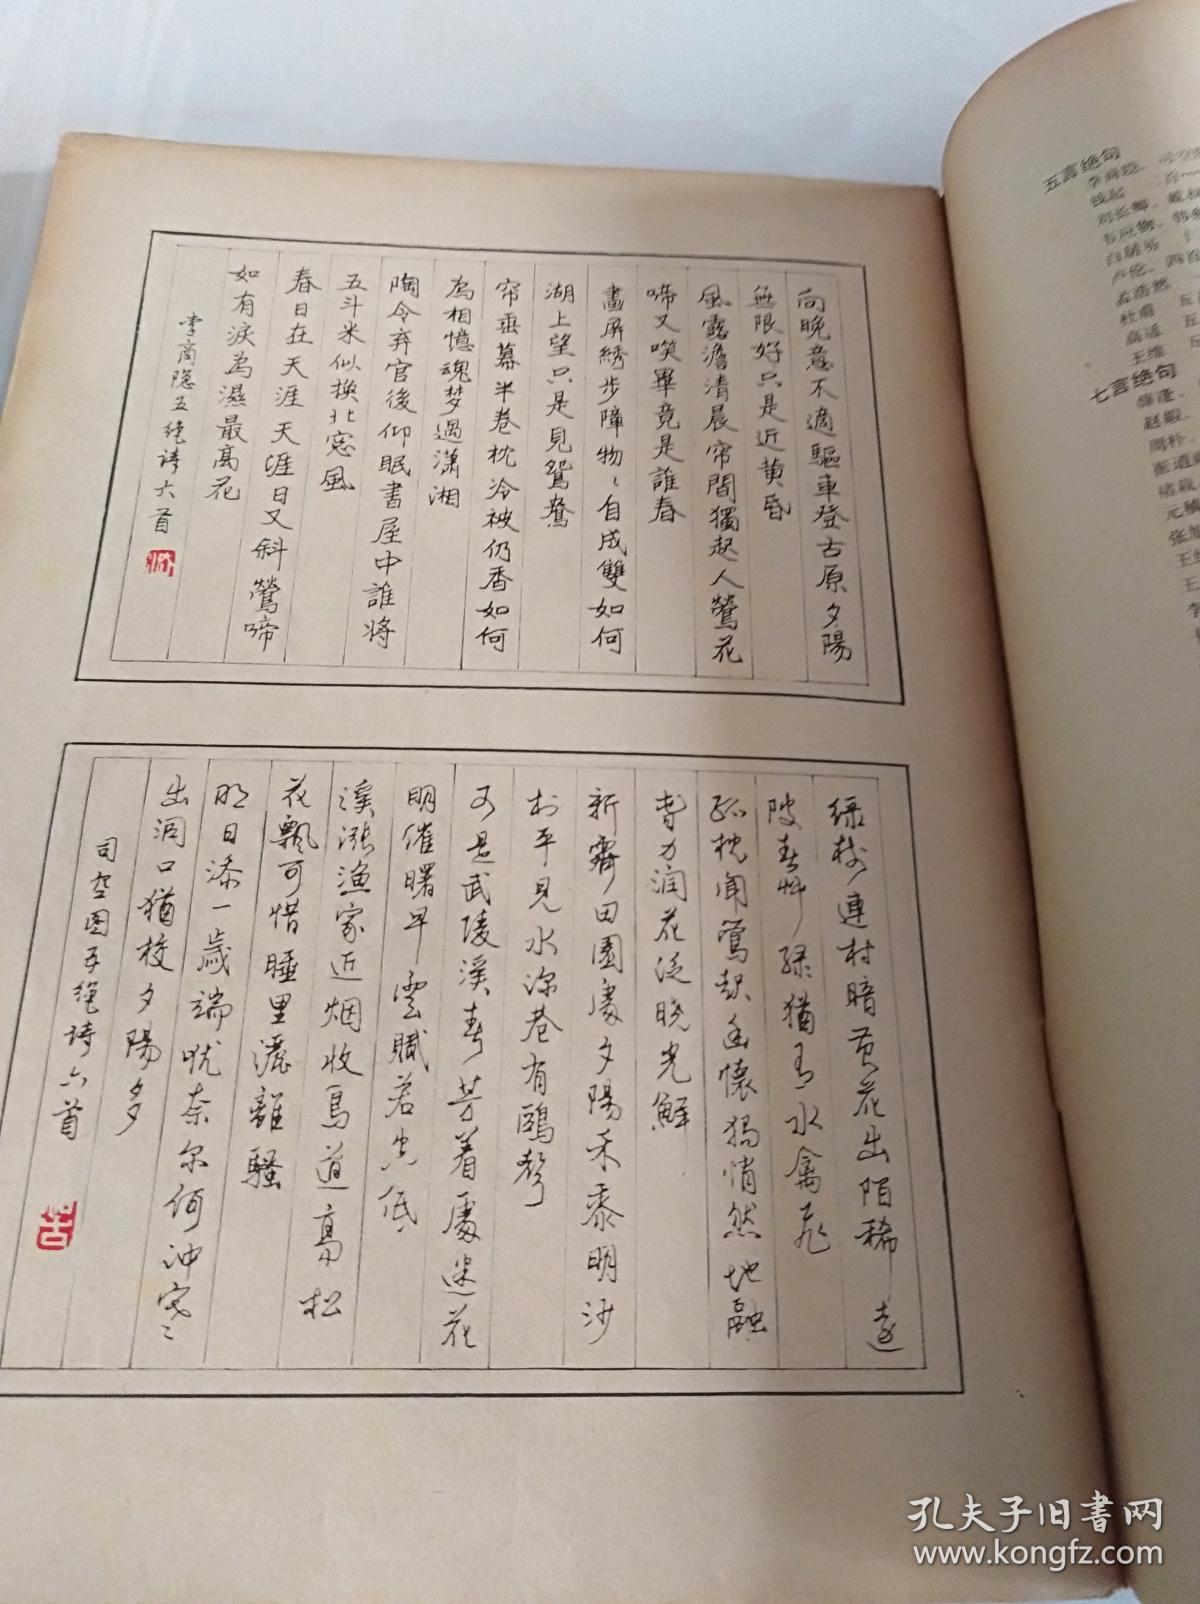 向晚意不適驅車登古原夕陽
無限好只是近黄昏
風露澹清晨帘間獨起人鶯花
啼又唉畢竟是誰春
畫屏綉步障物々自成雙如何
湖上望只是見鴛鴦
帘垂幕半卷枕冷被仍香如何
為相憶魂梦過潇湘
陶令弃官後仰眠書屋中誰将
五斗米似换北窓風
春日在天涯天涯日又斜鶯啼
如有淚為濕最高花
李商隐五绝诗六首
绿树連村暗黄花出陌稀遠
陂春艸绿猶有水禽飛
孤枕闻鶯起幽懷獨悄然地融
春力润花泛晓光鲜
新霽田園處夕陽禾黍明沙
村平見水深巷有鷗聲
又是武陵溪春芳着處迷花
明催曙早雲腻若空低
溪漲漁家近烟收鳥道高松
花飄可惜睡里灑離騷
明日添一歲端忧奈尔何冲寒々
出洞口猶校夕陽多
司空图五绝诗六首
五言绝句
李商隐、司空图
钱起 二首
刘长卿、戴叔
韦应物、韩
白居易
卢伦、
孟浩然
杜甫
高适
王维
七言绝句
薛逢、
赵嘏、
周朴、
崔道
元稹
张旭
孔夫子旧书网
www.kongfz.com